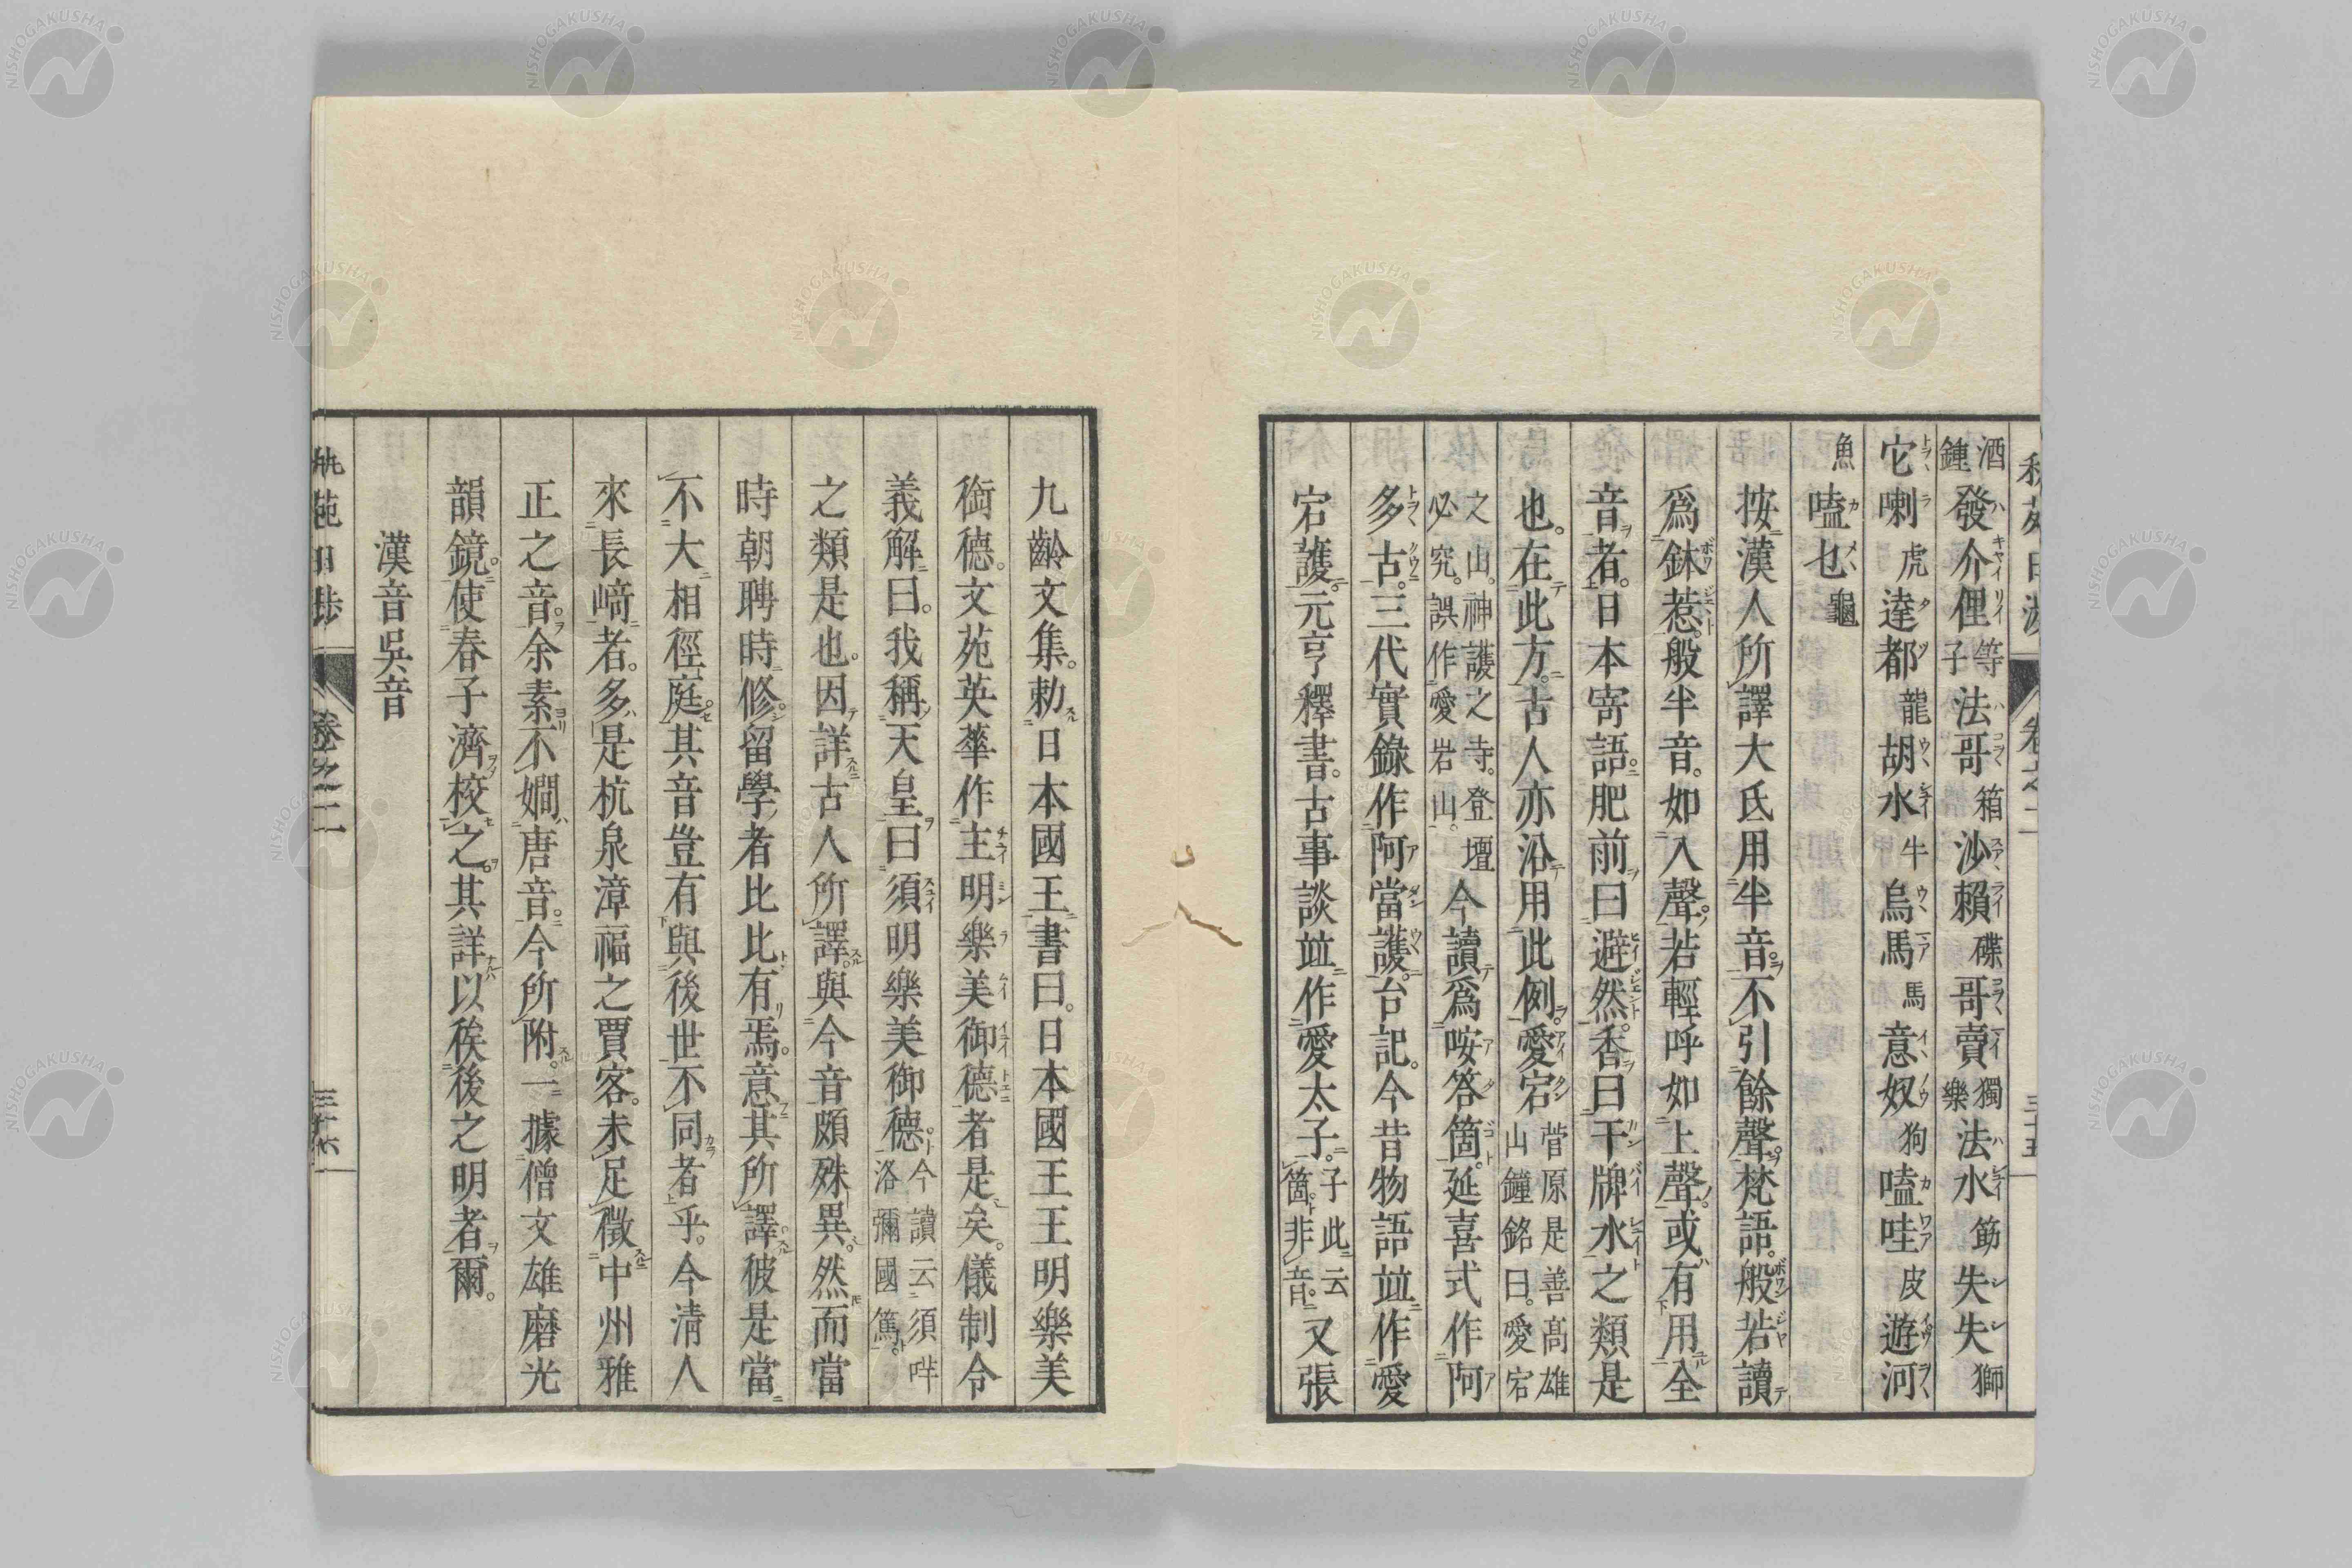 酒鍾發介俚等子法哥箱沙賴碟哥賣獨樂法水筯失失獅
它喇虎達都龍胡水牛烏馬馬意奴狗嗑哇皮遊河
魚嗑乜龜
按漢人所譯大氐用半音不引餘聲梵語般若讀
爲鉢惹般半音如入聲若輕呼如上聲或有用全
音者日本寄語肥前曰避然香曰干牌水之類是
也在此方古人亦沿用此例愛宕菅原是善髙雄山鐘銘曰愛宕
之山神護之寺登壇必究誤作愛岩山今讀爲咹答箇延喜式作阿
多古三代實錄作阿當護台記今昔物語竝作愛
宕護元亨釋書古事談竝作愛太子子此云箇非音又張
九齡文集勅日本國王書曰日本國王王明樂美
銜德文苑英華作主明樂美御德者是矣儀制令
義解曰我稱天皇曰須明樂美御德今讀云須咩洛彌國篤
之類是也因詳古人所譯與今音頗殊異然而當
時朝聘時修留學者比比有焉意其所譯彼是當
不大相徑庭其音豈有與後世不同者乎今清人
來長﨑者多是杭泉漳福之賈客未足徵中州雅
正之音余素不嫺唐音今所附一據僧文雄磨光
韻鏡使春子濟校之其詳以俟後之明者爾
漢音吳音
卷之二
三十六
NISHOGAKUSHA